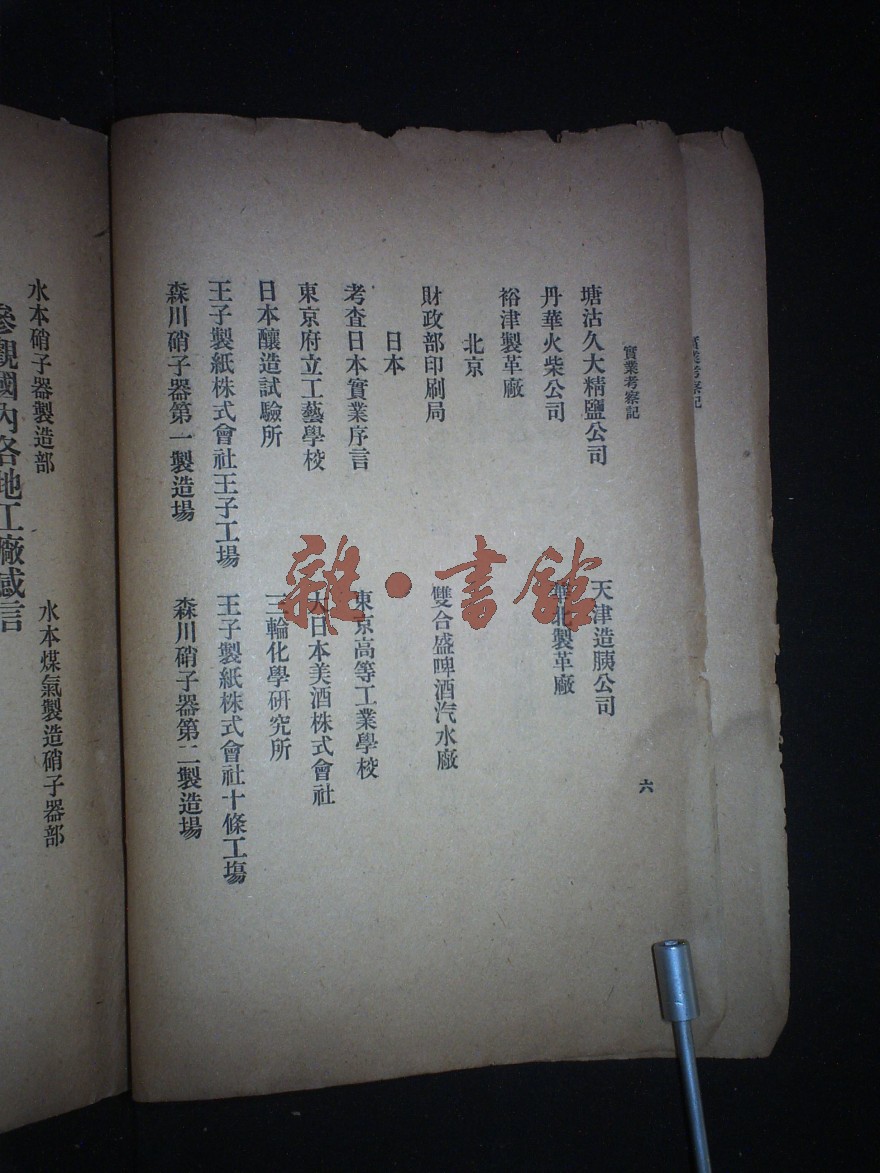 實業考察記
實業考察記
六
塘沽久大精鹽公司
天津造胰公司
丹華火柴公司
華北製革廠
裕津製革廠
北京
財政部印刷局
雙合盛啤酒汽水廠
日本
考查日本實業序言
東京府立工藝學校
東京高等工業學校
日本釀造試驗所
大日本美酒株式會社
三輪化學研究所
王子製紙株式會社王子工場
王子製紙株式會社十條工塲
森川硝子器第一製造場
森川硝子器第二製造場
水本硝子器製造部
水本煤氣製造硝子器部
參觀國內各地工廠感言
雜·書館